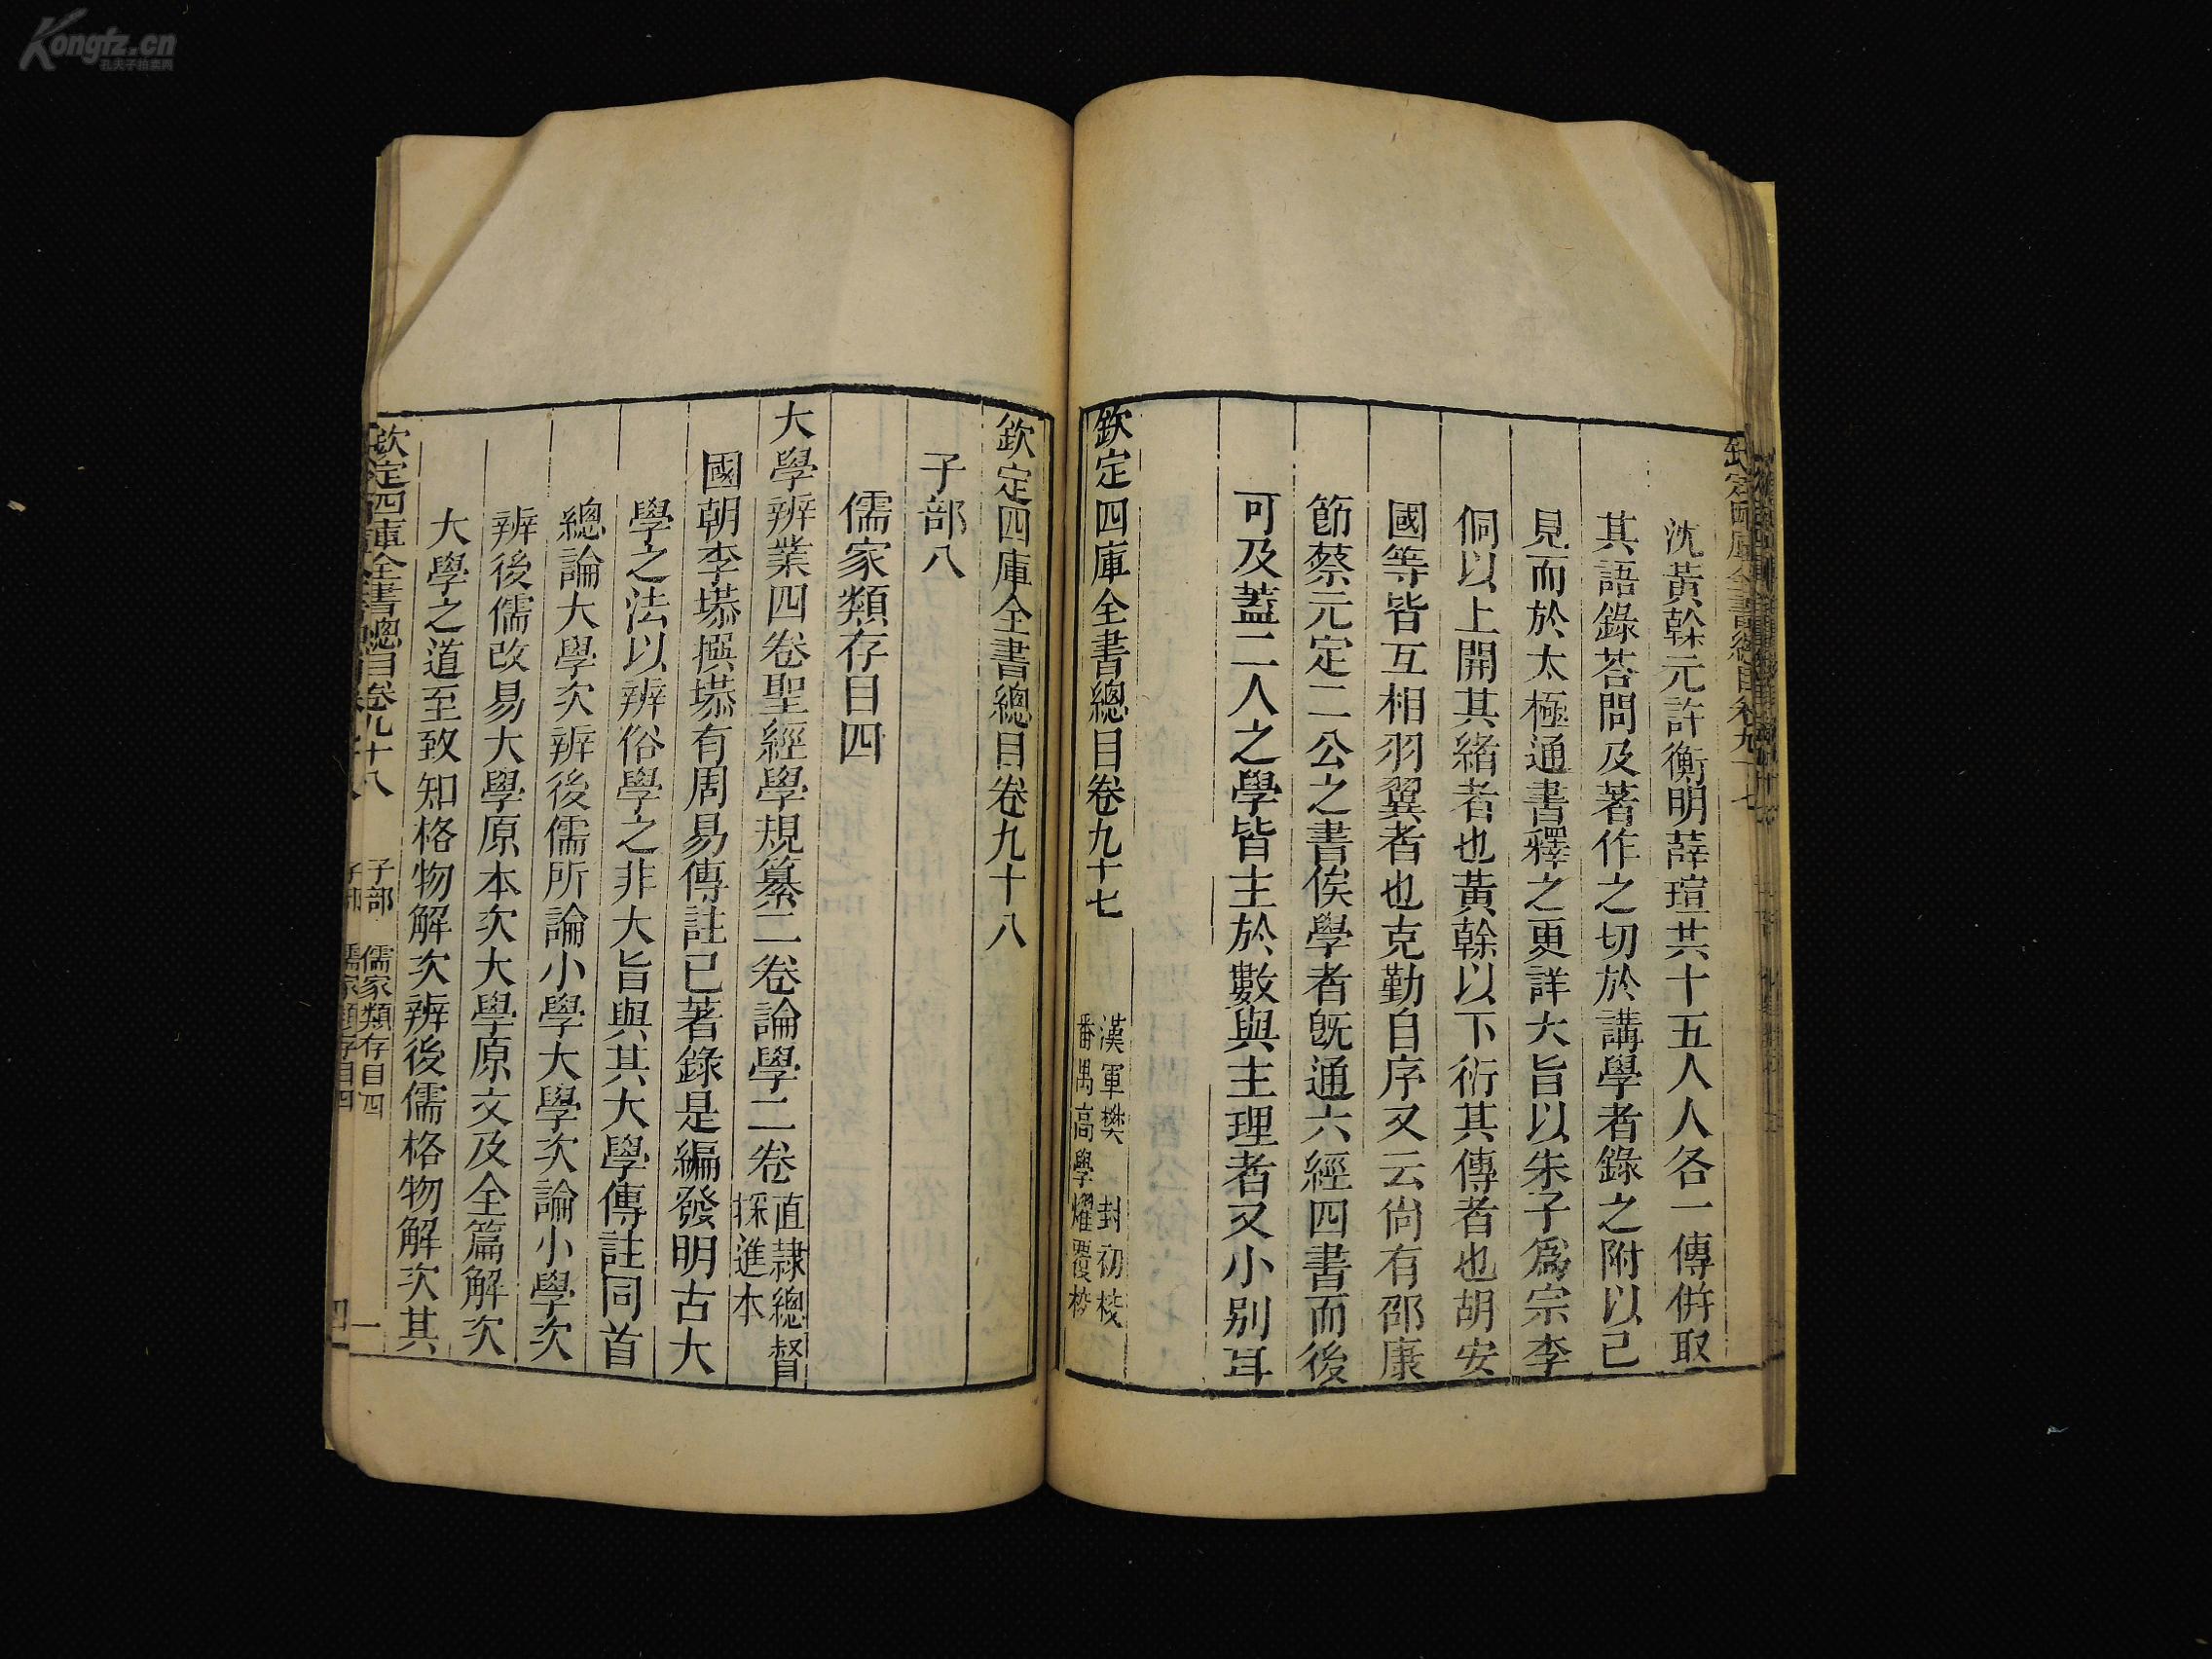 Kongfz.cn
孔夫子拍卖网
沈黃榦元許衡明薛瑄共十五人人各一傳併取
其語錄荅問及著作之切於講學者錄之附以己
見而於太極通書釋之更詳大旨以朱子爲宗李
侗以上開其緒者也黃榦以下衍其傳者也胡安
國等皆互相羽翼者也克勤自序又云尙有邵康
節蔡元定二公之書俟學者旣通六經四書而後
可及蓋二人之學皆主於數與主理者又小別耳
欽定四庫全書總目卷九十七
漢軍樊封初校
番禺高學燿覆校
欽定四庫全書總目卷九十八
子部八
儒家類存目四
大學辨業四卷聖經學規纂二卷論學二卷
直隷總督
採進本
國朝李塨撰塨有周易傳註已著錄是編發明古大
學之法以辨俗學之非大旨與其大學傳註同首
總論大學次辨後儒所論小學大學次論小學次
辨後儒改易大學原本次大學原文及全篇解次
大學之道至致知格物解次辨後儒格物解次其
欽定四庫全書總目卷九十八
子部
儒家類存目四
一